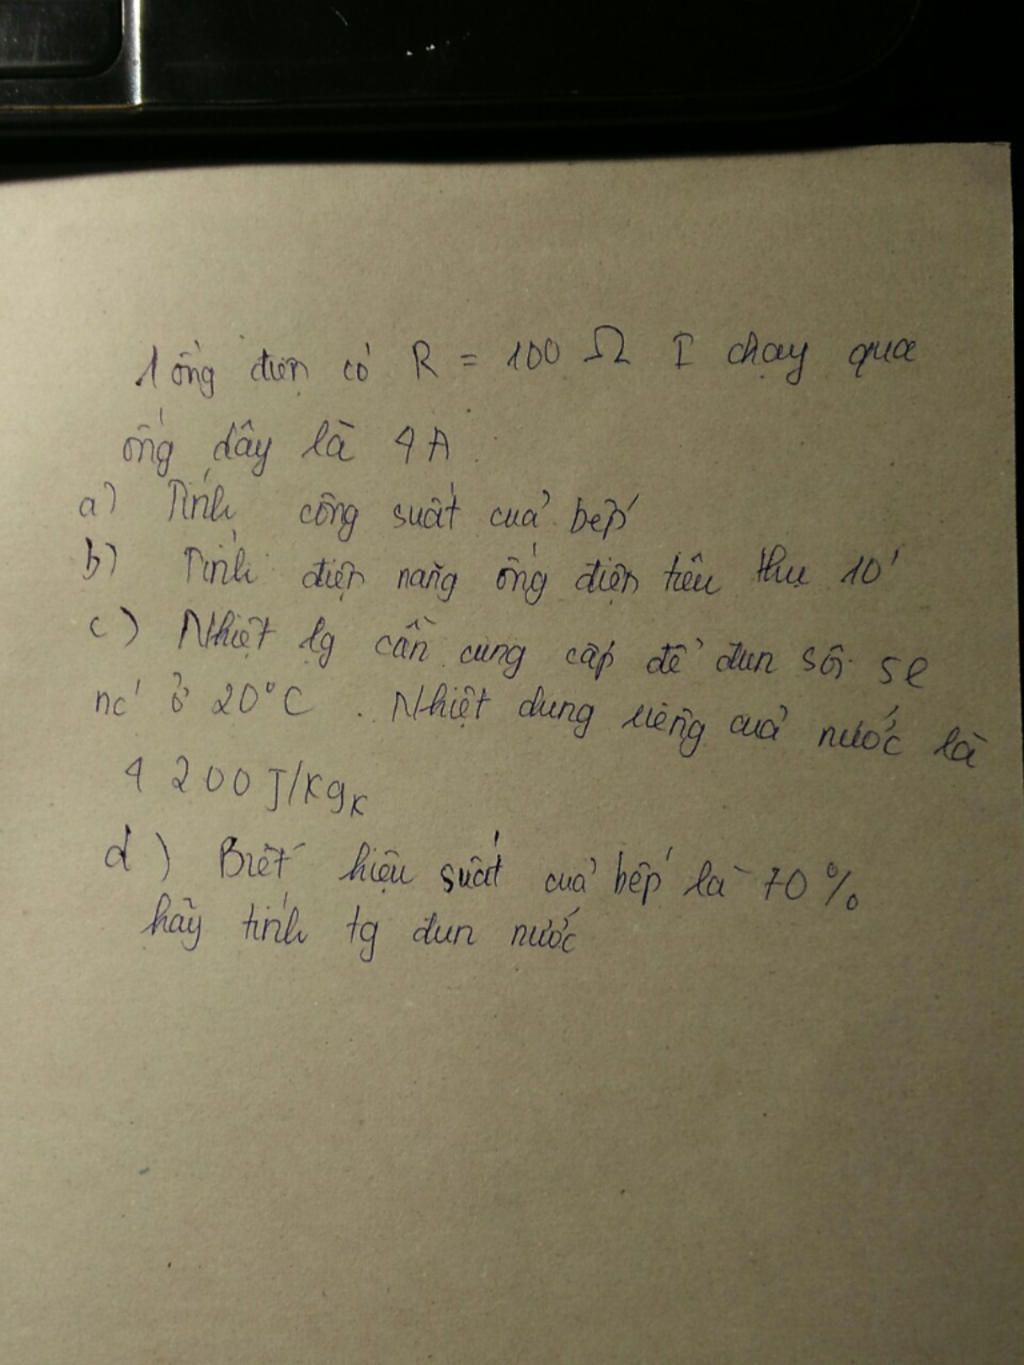 1 ống điện có R = 100 Ω I chạy qua
ống dây là 4A
a) Tính công suất của bếp
b) Tính điện năng ống điện tiêu thụ 10'
c) Nhiệt lg cần cung cấp để đun sôi 5l
nc' ở 20°C . Nhiệt dung riêng của nước là
4 200 J/kgK
d) Biết hiệu suất của bếp là 70%
hãy tính tg đun nước